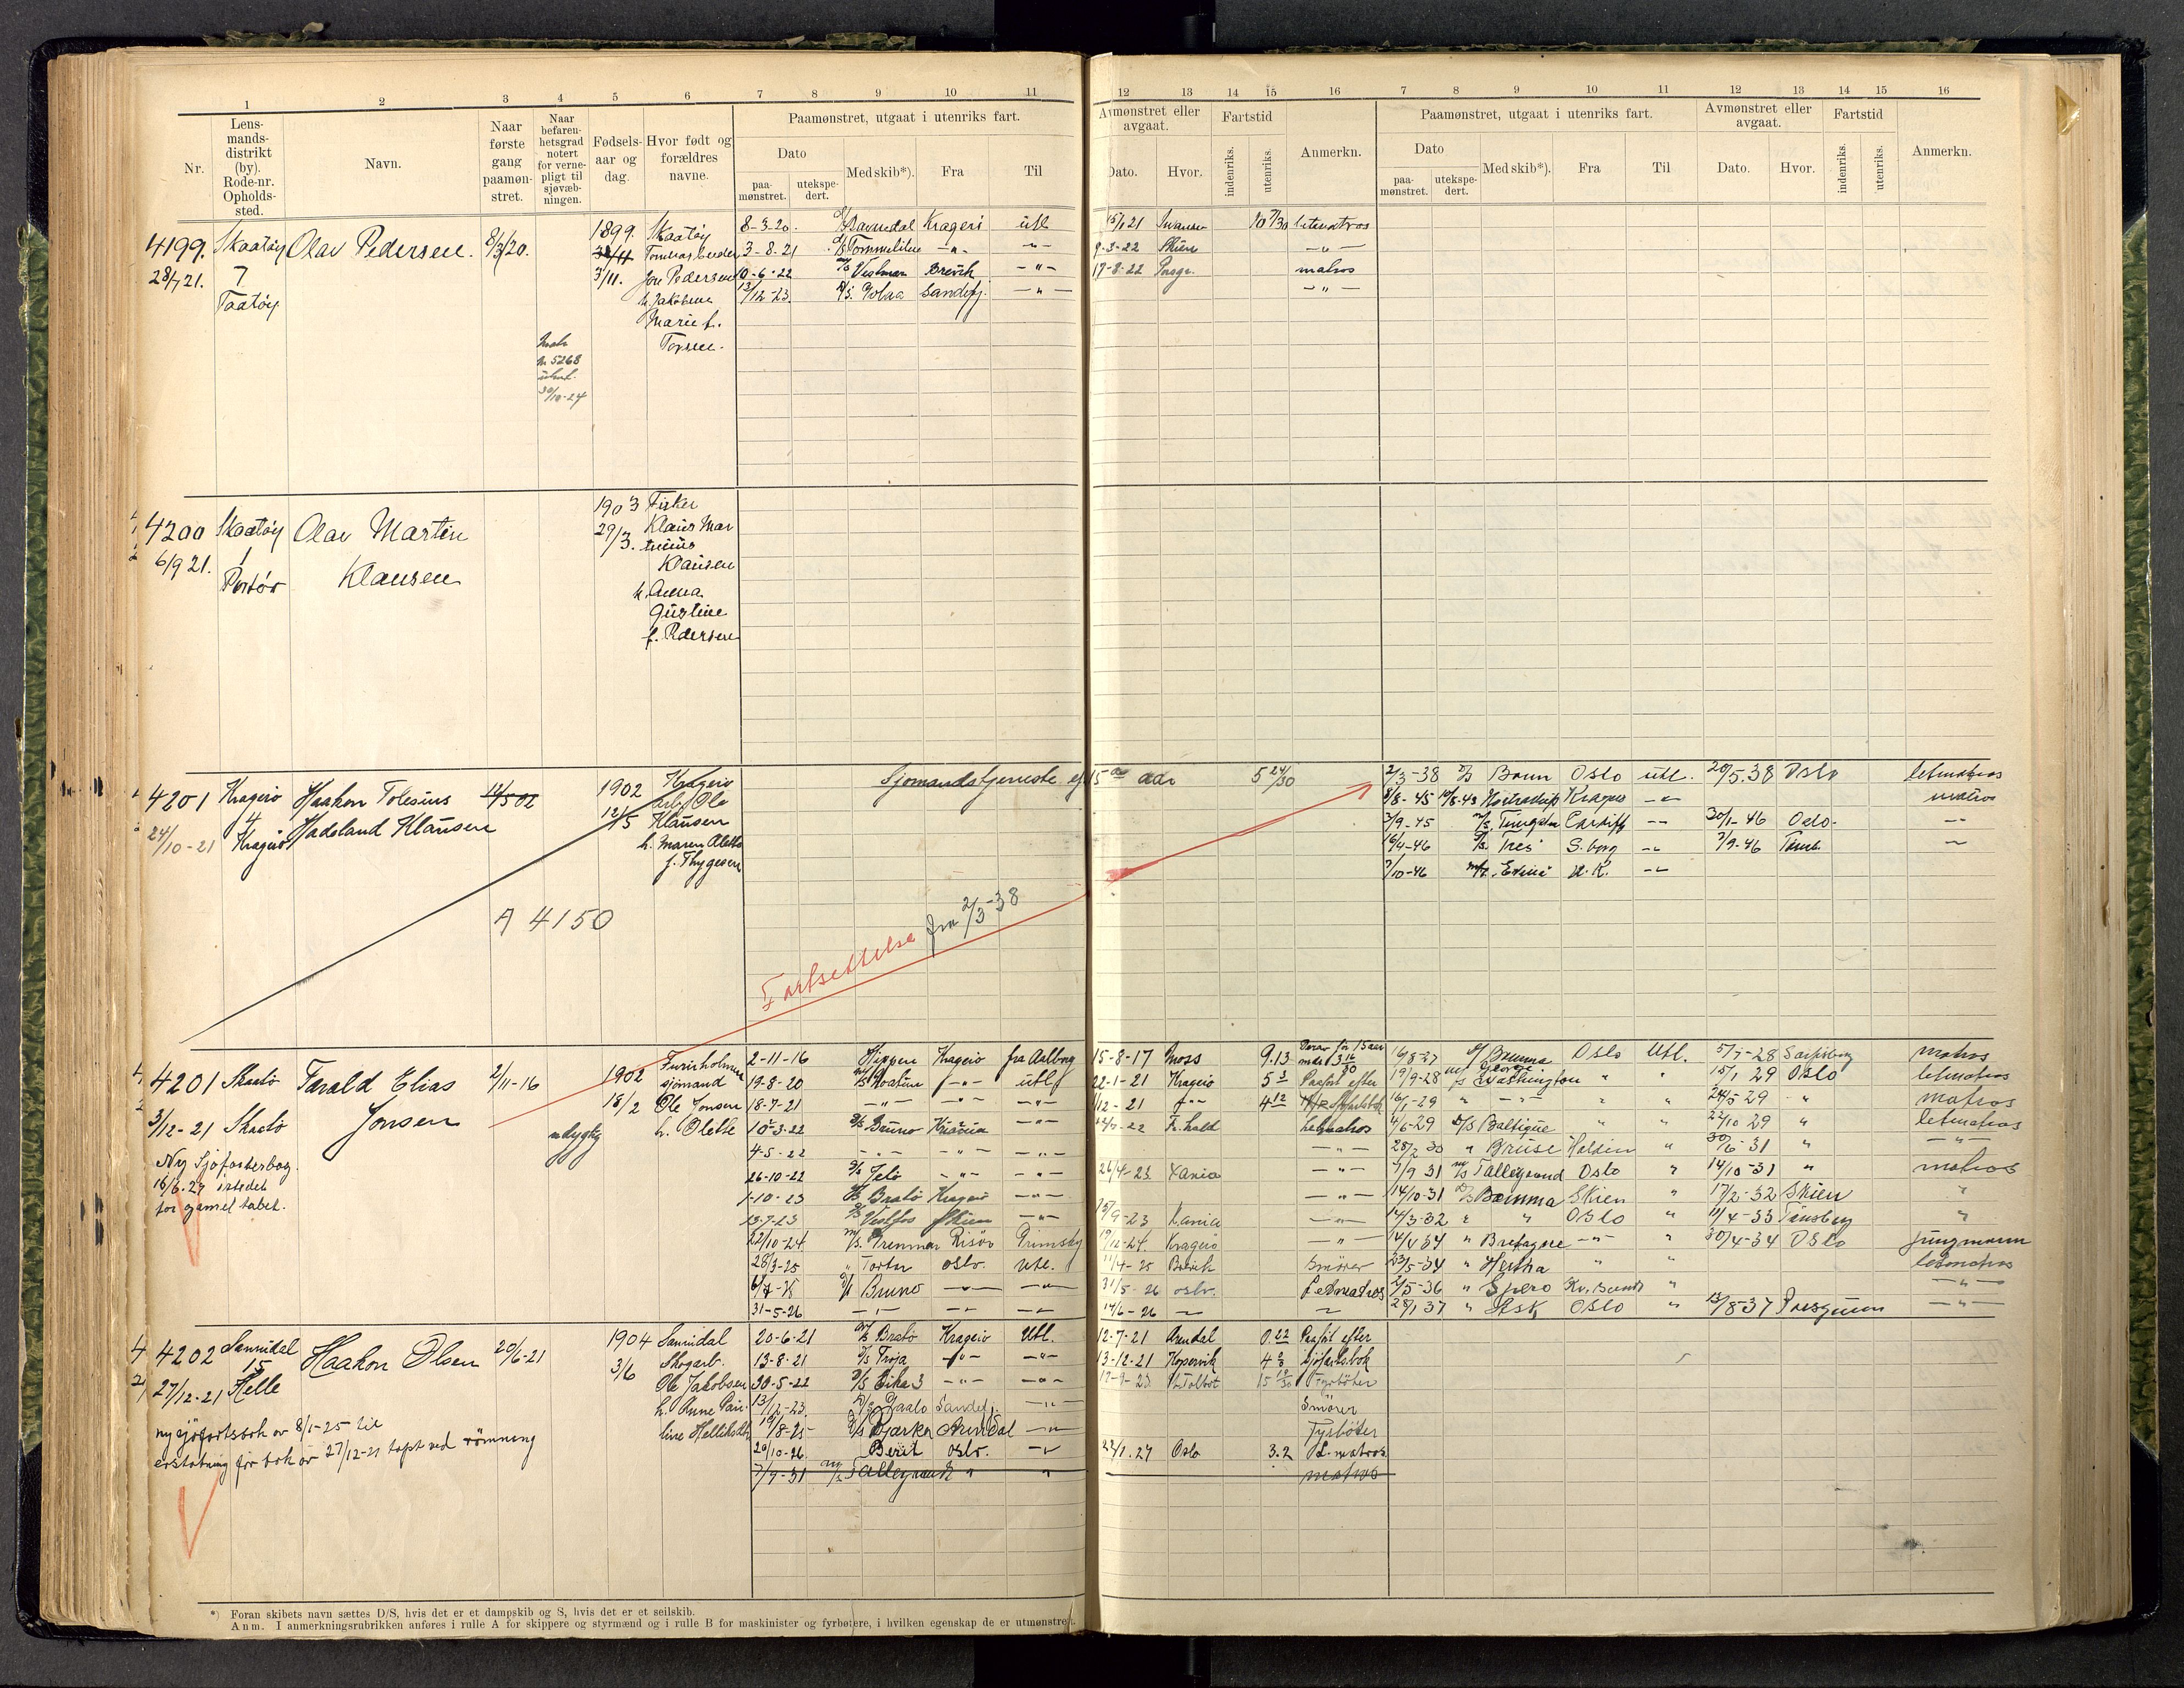 1 2 3 4 5 6 7 8 9 10 11
12 13 14 15 16 7 8 9 10 11 12 13 14 15 16
Nr.
Lens-
mands-
distrikt
(by).
Rode-nr.
Opholds-
sted.
Navn.
Naar
første
gang
paamøn-
stret.
Naar
befaren-
hetsgrad
notert
for verne-
pligt til
sjøvæb-
ningen.
Fødsels-
aar og
dag.
Hvor født og
forældres
navne.
Paamønstret, utgaat i utenriks fart.
Dato
paa-
mønstret.
utekspe-
dert.
Med skib*).
Fra
Til
Avmønstret eller
avgaat.
Dato.
Hvor.
Fartstid
indenriks.
utenriks.
Anmerkn.
Paamønstret, utgaat i utenriks fart.
Dato
paa-
mønstret.
utekspe-
dert.
Med skib*).
Fra
Til
Avmønstret eller
avgaat.
Dato.
Hvor.
Fartstid
indenriks.
utenriks.
Anmerkn.
4199. Skaatøy Olav Pedersen. 8/3/20.
28/7 21. 7
Taatøy
1899.
3/11.
Skaatøy
Jon Pedersen
h. Jakobine
Marie f.
Torsen.
5268
30/10-24
8-3-20. Ravnedal Kragerö utl 15/1 21 letmatros
3-8-21 Tommeliten -"- -"- 9-3-22 Skien -"-
10-6-22 Vestmar Brevik -"- 17-8-22 Porsgr. matros
12/12-23. Sandefj. -"- -"-
4200 Skaatøy Olav Martin
6/9 21. 1 Klausen
Portør
1903
29/3.
Fisker
Klaus Mar
tinius
Klausen
h. Anna
Gustine
f. Pedersen
4201 Kragerö Haakon Tolesius 12/5 02
24/10-21 4 Hadeland Klausen
Kragerö
1902
12/5
Kragerö
arb. Ole
Klausen
h. Maren Alette
f. Thygesen
A 4150
Sjömandstjeneste eft 15 de aar 5 24/30
Fortsettelse fra 2/3-38
2/3-38 D/S Bomn Oslo utl. 20/5.38 Oslo letmatros
8/8-45 10/8-43 Kragerö -"- matros
3/9-45 Cardiff -"- 30/1-46 Oslo- -"-
16/4-46 Tres S.borg -"- 7/9-46 -"-
7/10-46 U.K. -"-
4201 Skaatö Tarald Elias 2/11-16
3/12-21 Skaatö Jonsen
udygtig
Ny Sjöfartsbog
16/6.27 istedet
for gamel tabet.
1902
18/2
Furuholmen
sjömand
Ole Jonsen
h. Olette
2-11-16 Kragerö fra Aalborg 15-8-17 Moss 9.13
19-8-20 -"- utl 22-1-21 Kragerö 5 Paaført efter
18-7-21 -"- -"- -"- 12-21 -"- 4 12 Sjøfartsbok
10-3-22 D/S Bruno Kr.ania -"- Fr.hald letmatros
4-5-22 -"- -"- -"- -"-
26-10-22 D/S Jelö -"- -"- 26/4-23 Kania -"-
1-10-23 Bratö Kragerö -"- -"-
13-7-23 Vestfos Skien -"- 15/9-23 K.ania -"-
22/10-24. M/S. Grenmar Risör Grimsby 19/12-24. Kragerö -"-
28/3-25 " Oslo. utl. 11/4-25 Brevik Smörer
Bruno -"- -"- 31/5-26 Oslo. Letmatros
31-5-26 -"- -"- -"- 14/6-26 -"- -"-
16/8-27 Bomma Oslo Utl. 5/7-28 Sarpsborg matros
19/9-28 George Washington " " 15/1 29 Oslo letmatros
16/1-29 " -"- " " 24/5-29 " matros
4/6-29 D/S Baltique " " 22/10 29 " letmatros
28/2 30 " Bruse Halden " 30/6-31 " -"-
7/9 31 M/S Talleyrand Oslo " 14/10-31 " matros
14/10-31 D/S Bomma Skien " 17/2-32 Skien "
14/3-32 " " Oslo " 11/4-33 Tönsberg "
14/4 34 " Bretagne -"- " 30/4-34 Oslo jungmann
23/5-34 " Hertha " " letmatros
2/5-36 " Spero Kr.sund " -"-
28/1 37 " Ask Oslo " 13/8-37 Porsgrunn -"-
4202 Sannidal Haakon Olsen 20/6-21
27/12-21 15
Helle
ny sjöfartsbok av 8/1-25 til
erstatning for bok av 27/12-21 tapt ved römning
1904
3/6
Sannidal
Skogarb.
Ole Jakobsen
h. Anne Pau-
line
20-6-21 Bratö Kragerö Utl. 12-7-21 Arendal 0.22 Paaført efter
13-8-21 D/S Troja -"- -"- 13-12-21 Kopervik 4 Sjöfartsbok
30-5-22 D/S Eika 3 -"- -"- 17-9-23 15 Fyrböter
13/12-23. Sandefj. -"- Smörer
19/8-25- D/S Bjarka Arendal -"- Fyrböter
20/10-26 Berit Oslo. -"- 22/1.27 Oslo 3.2 L-matros
7/9-31 M/S Talleyrand " " matros
*) Foran skibets navn sættes D/S, hvis det er et dampskib og S, hvis det er et seilskib.
Anm. I anmerkningsrubrikken anføres i rulle A for skippere og styrmænd og i rulle B for maskinister og fyrbøtere, i hvilken egenskap de er utmønstret.